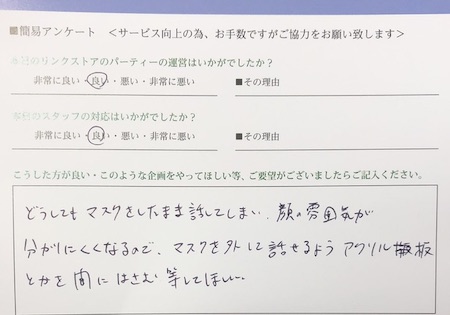 ■簡易アンケート ＜サービス向上の為、お手数ですがご協力をお願い致します＞
本日のリンクストアのパーティーの運営はいかがでしたか？
非常に良い・良い・悪い・非常に悪い ■その理由
本日のスタッフの対応はいかがでしたか？
非常に良い・良い・悪い・非常に悪い ■その理由
こうした方が良い・このような企画をやってほしい等、ご要望がございましたらご記入ください。
どうしてもマスクをしたまま話してしまい、顔の雰囲気が
分かりにくくなるので、マスクを外して話せるようアクリル板
とかを間にはさむ等してほしい。